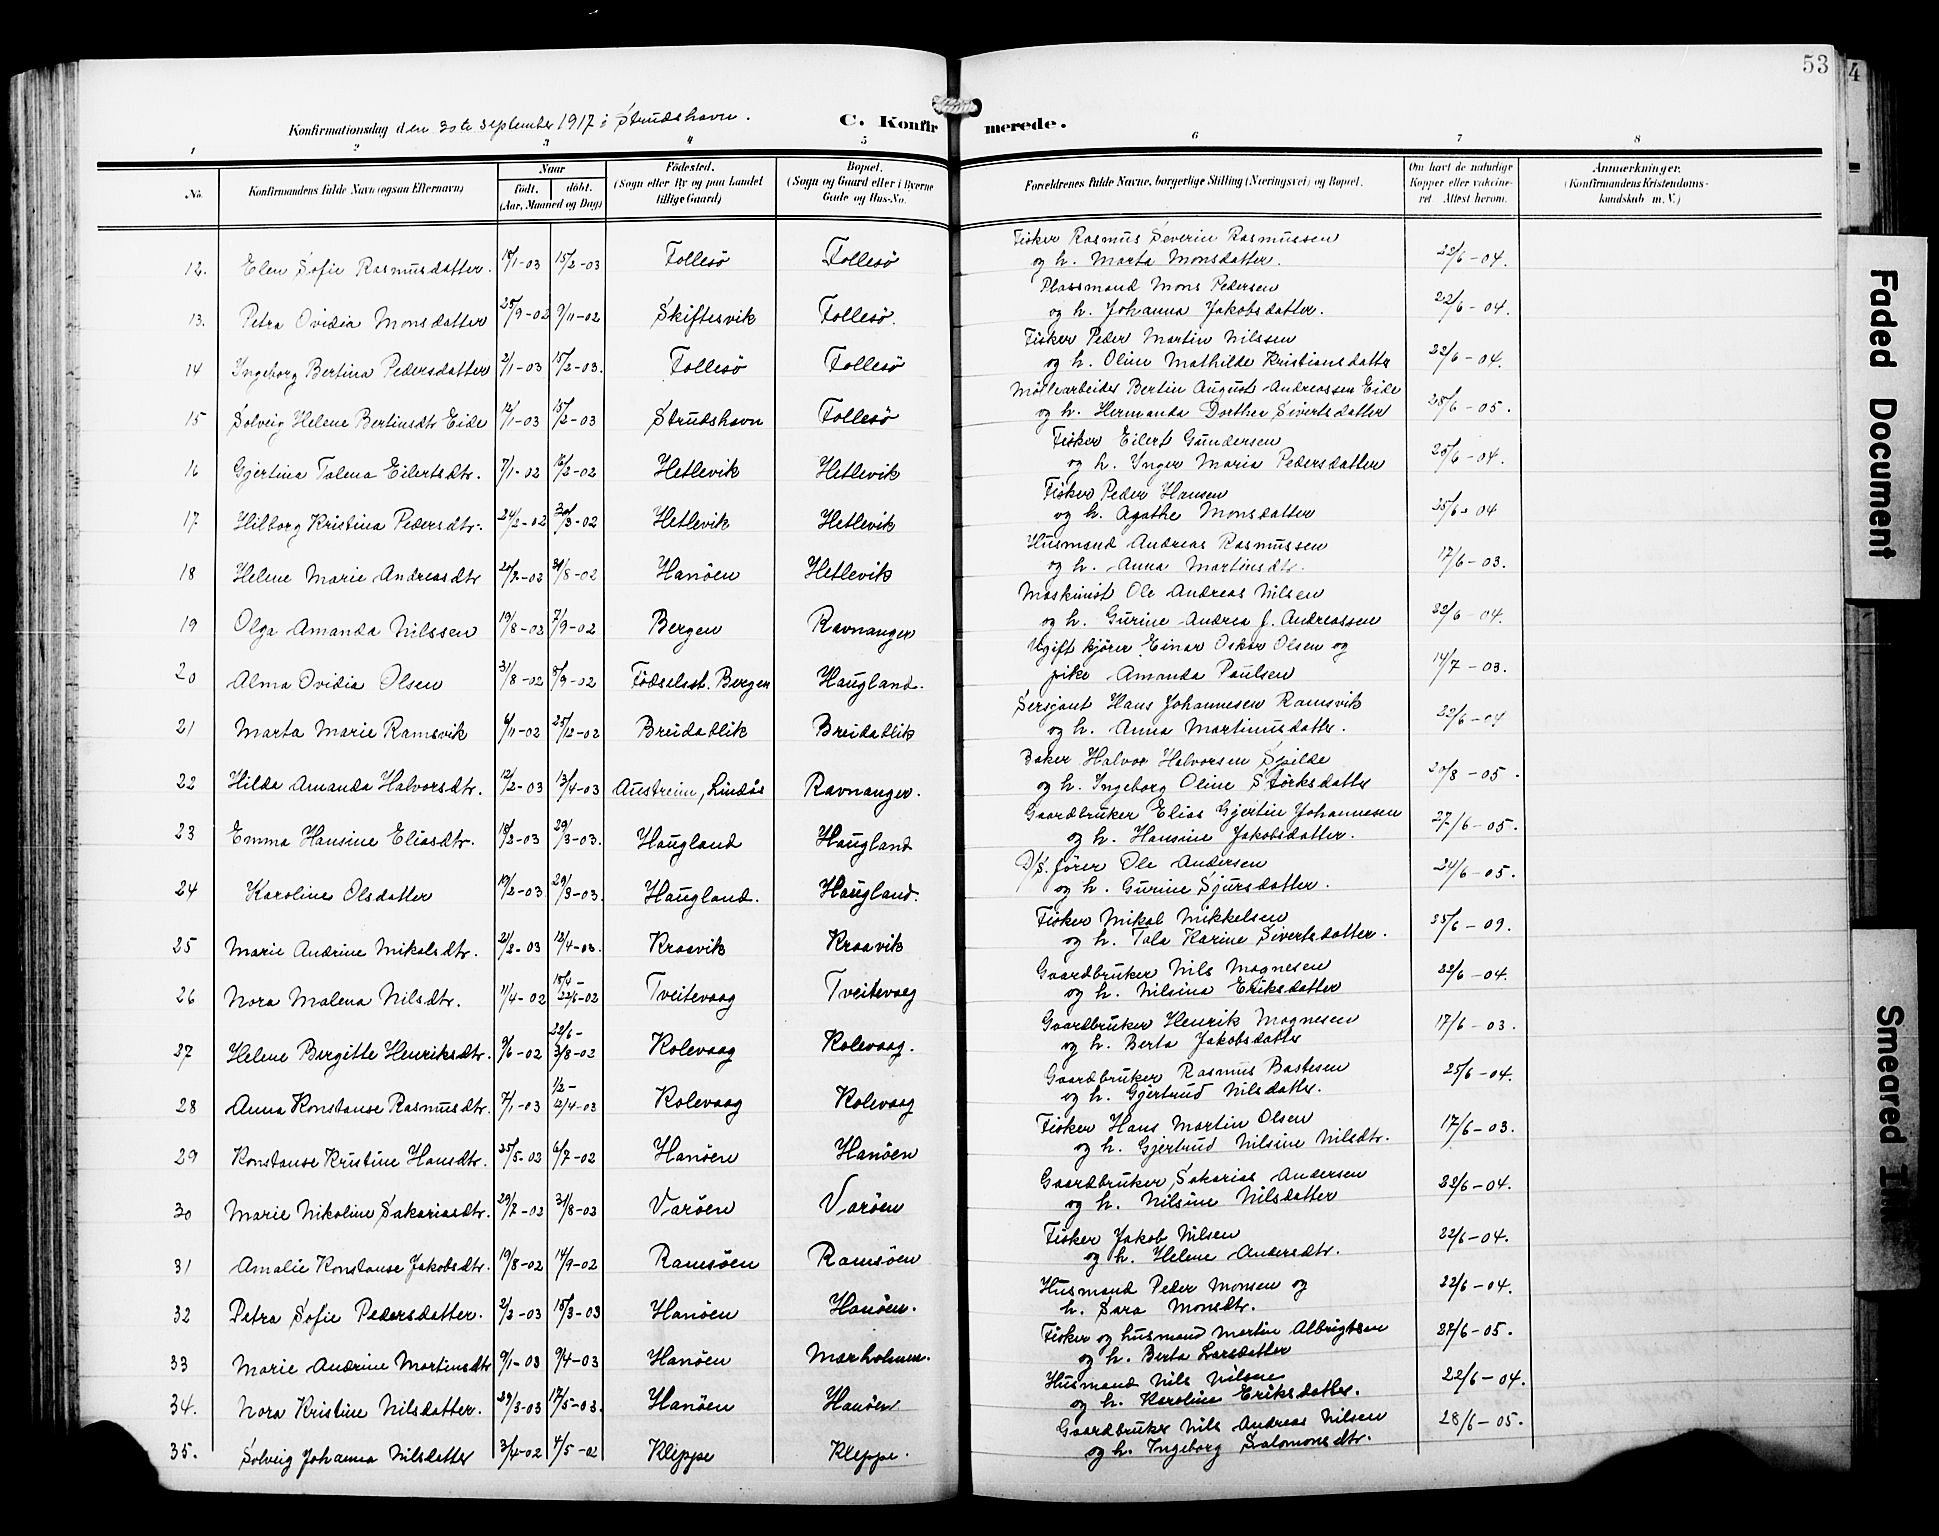 53
4
Konfirmationsdag den 30te September 1917 i Strudshavn.
C. Konfirmerede.
1 2 3 4 5 6 7 8
No. Konfirmandens fulde Navn (ogsaa Efternavn) Naar født. døbt. (Aar, Maaned og Dag) Fødested. (Sogn eller By og paa Landet tillige Gaard) Bopæl. (Sogn og Gaard eller i Byerne Gade og Hus-No. Forældrenes fulde Navne, borgerlige Stilling (Næringsvei) og Bopæl. Om havt de naturlige Kopper eller vakcineret. Attest herom. Anmerkninger. (Konfirmandens Kristendomskundskab m. V.)
12. Elen Sofie Rasmusdatter. 15/2-03 Follesö Follesö Fisker Rasmus Severin Rasmussen og h. Marta Monsdatter. 22/6-04.
13. Petra Ovidia Monsdatter 25/9-02 9/11-02 Skiftesvik Follesö. Plassmand Mons Pedersen og h. Johanna Jakobsdatter. 22/6-04.
14 Ingeborg Bertina Pedersdatter 2/1-03 15/2-03. Follesö Follesö Fisker Peder Martin Nilssen og h. Oline Mathilde Kristiansdatter 22/6-04.
15 Solveig Helene Bertinsdtr Eide 12/1-03 15/2-03 Strudshavn Follesö Möllearbeider Bertin August Andreassen Eide og h. Hermanda Dorthea Sivertsdatter 28/6-05.
16 Gjertina Talena Eilertsdtr. 7/1-02 16/2-02 Hetlevik Hetlevik Fisker Eilert Gundersen og h. Inger Maria Pedersdatter 25/6-04.
17 Hilborg Kristina Pedersdtr. 24/2-02 30/3-02 Hetlevik Hetlevik Fisker Peder Hansen og h. Agathe Monsdatter 25/6-04
18 Helene Marie Andreasdtr 20/7-02 31/8-02 Hanöen Hetlevik Husmand Andreas Rasmussen og h. Anna Martinsdtr. 17/6-03.
19 Olga Amanda Nilssen 19/8-02 7/9-02 Bergen Ravnanger Maskinist Ole Andreas Nilsen og h. Gurine Andrea J. Andreassen 22/6-04.
20 Alma Ovidia Olsen 31/8-02 8/9-02 Födselsst. Bergen Haugland. Ugift kjörer Einar Oskar Olsen og pike Amanda Paulsen 14/7-03.
21 Marta Marie Ramsvik 6/11-02 25/12-02 Breidablik Breidablik Sersjant Hans Johannesen Ramsvik og h. Anna Martinusdatter. 22/6-04
22 Hilda Amanda Halvorsdtr. 12/2-03 13/4-03 Austreim, Lindås Ravnanger. Baker Halvor Halvorsen Spilde og h. Ingeborg Oline Störksdatter 20/8-05.
23 Emma Hansine Eliasdtr. 18/2-03 29/3-03. Haugland Haugland Gaardbruker Elias Gjertin Johannesen og h. Hansine Jakobsdatter. 27/6-05.
24 Karoline Olsdatter 19/2-03 29/3-03. Haugland. Haugland. D/S. förer Ole Andersen og h. Gurine Sjursdatter. 24/6-05.
25 Marie Andrine Mikalsdtr. 21/2-03 12/4-03. Kraavik Kraavik Fisker Mikal Mikkelsen og h. Tala Karine Sivertsdatter. 25/6-09.
26 Nora Malena Nilsdtr. 11/4-02 18/4- 22/6-02 Tveitevaag Tveitevaag Gaardbruker Nils Magnesen og h. Nilsina Eriksdatter 22/6-04.
27 Helene Bergitte Henriksdtr. 9/6-02 22/6- 3/8-02 Kolevaag Kolevaag. Gaardbruker Henrik Magnesen og h. Berta Jakobsdatter 17/6-03.
28 Anna Konstanse Rasmusdtr. 7/1-03 1/2- 12/4-03 Kolevaag Kolevaag Gaardbruker Rasmus Bastesen og h. Gjertrud Nilsdatter. 25/6-04.
29 Konstanse Kristine Hansdtr. 25/5-02 6/7-02 Hanöen Hanöen Fisker Hans Martin Olsen og h. Gjertrud Nilsine Nilsdtr. 17/6-03.
30 Marie Nikoline Sakariasdtr. 29/7-02 31/8-02 Varöen Varöen Gaardbruker Sakarias Andersen og h. Nilsine Nilsdatter 22/6-04.
31 Amalie Konstanse Jakobsdtr. 19/8-02 14/9-02 Ramsöen Ramsöen Fisker Jakob Nilsen og h. Helene Andersdtr. 22/6-04.
32 Petra Sofie Pedersdatter. 2/2-03 15/3-03 Hanöen Hanöen. Husmand Peder Monsen og h. Sara Monsdtr. 22/6-04.
33 Marie Andrine Martinsdtr 9/1-03 9/4-03 Hanöen Marholmen. Fisker og husmand Martin Albrigtsen og h. Berta Larsdatter 27/6-05.
34. Nora Kristine Nilsdatter. 29/3-03 17/5-03. Hanöen Hanöen Husmand Nils Nilsen og h. Karoline Eriksdatter. 22/6-04.
35. Solveig Johanna Nilsdatter 3/4-02 4/5-02 Kleppe Kleppe. Gaardbruker Nils Andreas Nilsen og h. Ingeborg Salomonsdtr. 28/6-05.
Faded Document
Smeared Ink